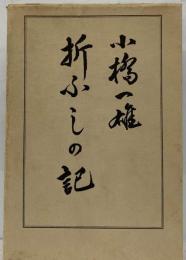 小橋一雄
折ふしの記